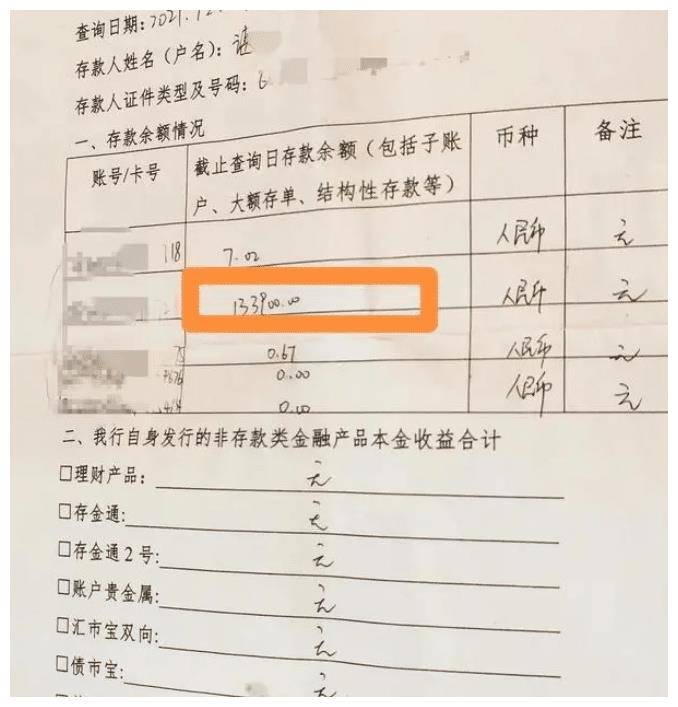 查询日期：2021.12
存款人姓名（户名）：
存款人证件类型及号码：6
一、存款余额情况
账号/卡号 截止查询日存款余额（包括子账户、大额存单、结构性存款等） 币种 备注
118 7.02 人民币 元
133900.00 人民币 元
75 0.67 人民币 元
7676 0.00 人民币 元
0.00
二、我行自身发行的非存款类金融产品本金收益合计
□理财产品： 元
□存金通： 元
□存金通2号: 元
□账户贵金属: 元
□汇市宝双向: 元
□债市宝: 元